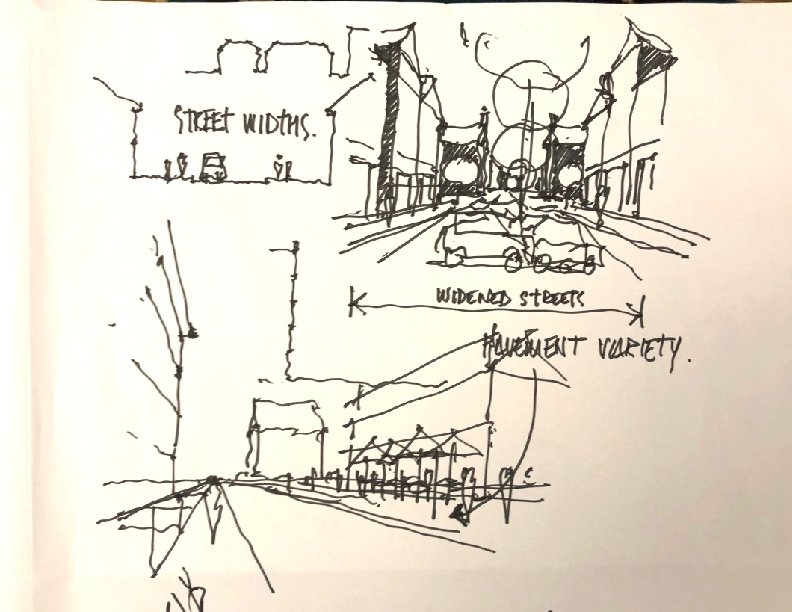 STREET WIDTHS.
WIDENED STREETS
PAVEMENT VARIETY.